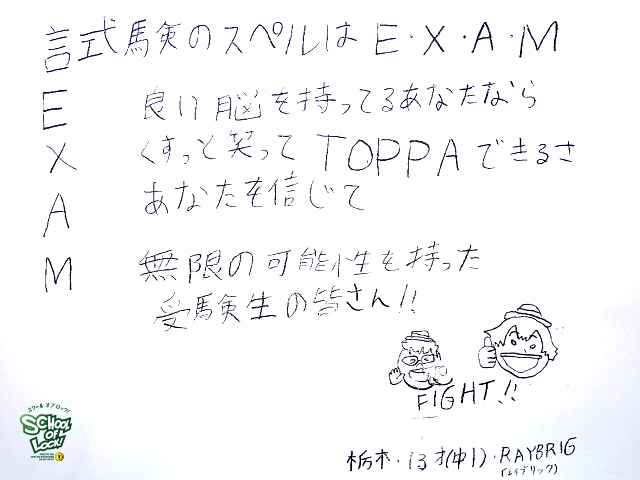 試験のスペルは E・X・A・M
E 良い脳を持ってるあなたなら
X くすっと笑って TOPPAできるさ
A あなたを信じて
M 無限の可能性を持った
受験生の皆さん!!
FIGHT!!
スクール オブ ロック!
SCHOOL OF LOCK!
栃木・13才(中1)・RAYBRIG
(レイブリック)